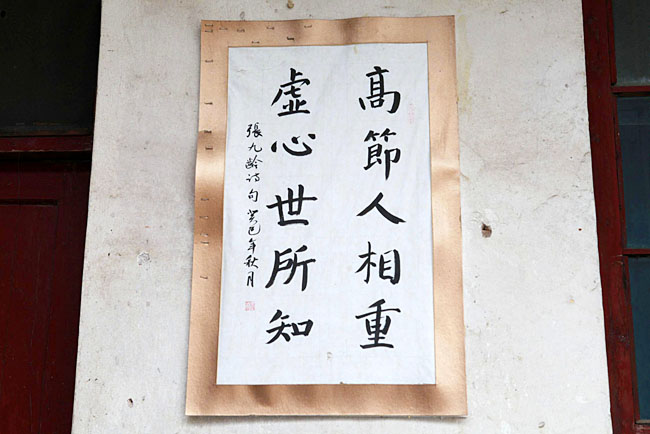 高節人相重
虛心世所知
張九龄诗句癸巳年秋月